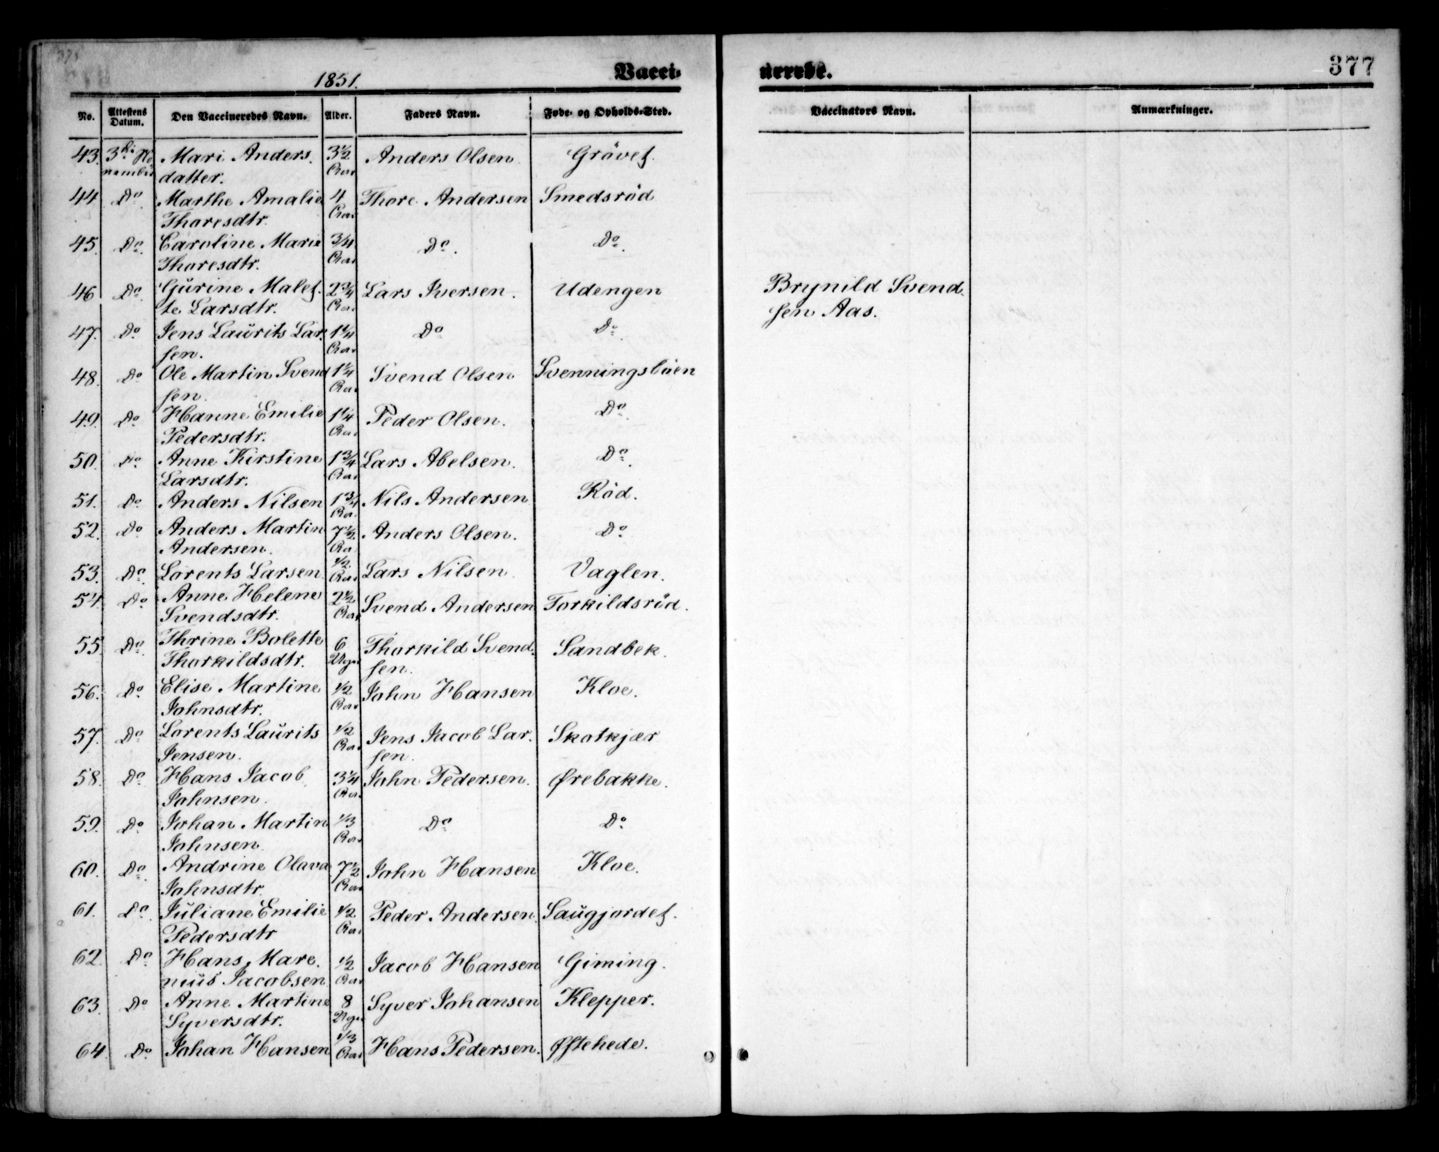 1851.
Vacci-
nerede.
377
No. Attestens Datum. Den Vaccineredes Navn. Alder. Faders Navn. Føde- og Opholds-Sted. Vaccinators Navn. Anmærkninger.
43. 3die No Mari Anders. 3½ Anders Olsen Gråvet.
vember datter. Aar
44 Do Marthe Amalie 4 Thore Andersen Smedsrød
Thoresdtr. Aar
45. Do Caroline Marie 3/4 Do. Do.
Thoresdtr. Aar
46 Do. Gurine Malet- 2¾ Lars Iversen. Udengen Brynild Svend-
te Larsdtr. Aar sen Aas.
47. Do Jens Laurits Lar- 1¼ Do Do
sen. Aar
48. Do Ole Martin Svend 1¼ Svend Olsen Svenningsbåen
sen. Aar
49. Do Hanne Emilie 1¼ Peder Olsen. Do.
Pedersdtr. Aar
50. Do Anne Kirstine 1¾ Lars Abelsen. Do.
Larsdtr. Aar
51. Do Anders Nilsen 1¾ Nils Andersen Rød.
Aar
52. Do Anders Martin 7½ Anders Olsen. Do
Andersen. Aar
53. Do Lorents Larsen ½ Lars Nilsen. Vaglen.
Aar
54. Do Anne Helene 2½ Svend Andersen Torkildsrød.
Svendsdtr. Aar
55 Do. Thrine Bolette 6 Thorkild Svend- Sandbek.
Thorkildsdtr. Uger sen.
56. Do Elise Martine ½ John Hansen Kloe.
Johnsdtr. Aar
57. Do Lorents Laurits ½ Jens Jacob Lar- Skotkjær
Jensen. Aar sen.
58. Do Hans Jacob 3¼ John Pedersen. Ørebakke.
Johnsen. Aar
59. Do Johan Martin 1/3 Do Do
Johnsen. Aar
60. Do Andrine Olava 7½ John Hansen Kloe.
Johnsdtr. Aar
61. Do Juliane Emilie ½ Peder Andersen. Saugjordet.
Pedersdtr Aar
62. Do Hans Mare- ½ Jacob Hansen Giming.
nius Jacobsen Aar
63. Do Anne Martine 8 Syver Johansen Klepper.
Syversdtr. Uger
64 Do. Johan Hansen 1/3 Hans Pedersen. Øftehede.
Aar